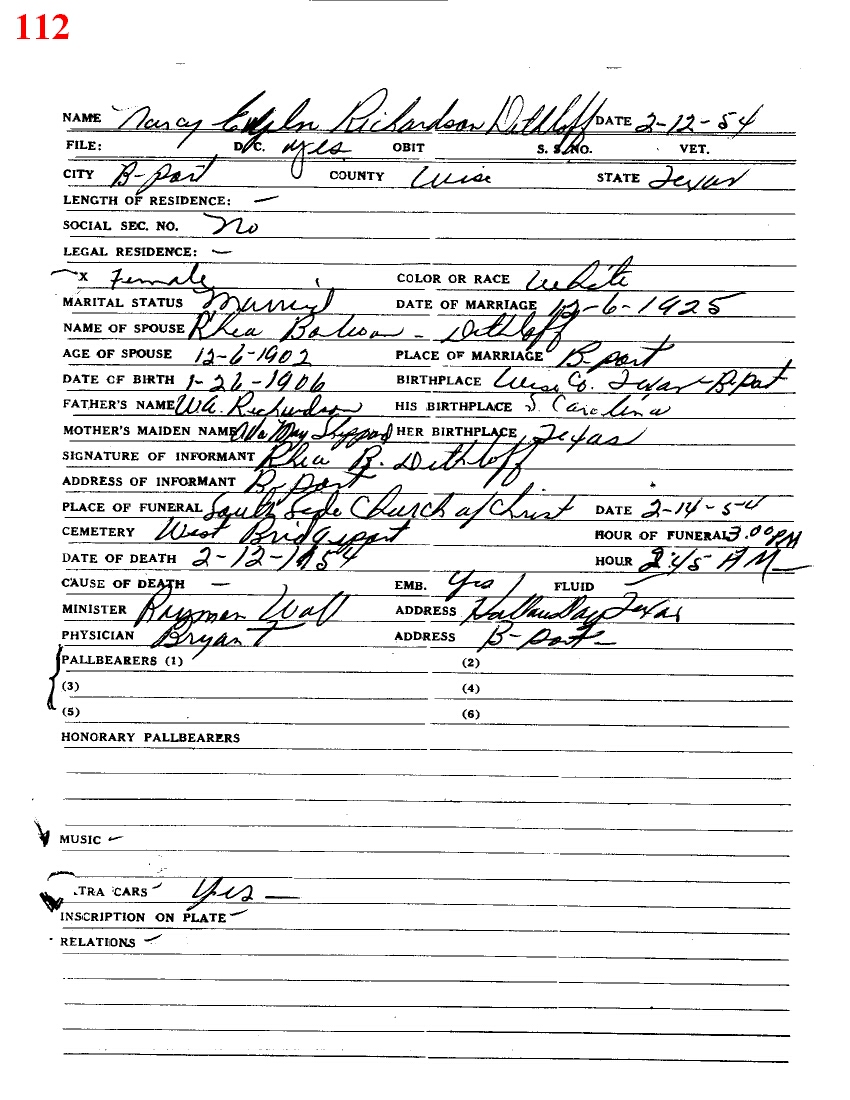 112
NAME Nancy Richardson Dithloff DATE 2-12-54
FILE: D/C. yes OBIT S. S. NO. VET.
CITY B-port COUNTY Wise STATE Texas
LENGTH OF RESIDENCE: —
SOCIAL SEC. NO. No
LEGAL RESIDENCE: —
X Female COLOR OR RACE White
MARITAL STATUS Married DATE OF MARRIAGE 12-6-1925
NAME OF SPOUSE Rhea - Dithloff
AGE OF SPOUSE 12-6-1902 PLACE OF MARRIAGE B-port
DATE OF BIRTH 1-26-1906 BIRTHPLACE Wise Co. Texas - B-port
FATHER'S NAME W.A. Richardson HIS BIRTHPLACE S. Carolina
MOTHER'S MAIDEN NAME May Sheppard HER BIRTHPLACE Texas
SIGNATURE OF INFORMANT Rhea B. Dithloff
ADDRESS OF INFORMANT B-port
PLACE OF FUNERAL South Side Church of Christ DATE 2-14-54
CEMETERY West Bridgeport HOUR OF FUNERAL 3:00 PM
DATE OF DEATH 2-12-1954 HOUR 2:45 AM —
CAUSE OF DEATH — EMB. Yes FLUID —
MINISTER Rayman Wall ADDRESS Texas
PHYSICIAN Bryant ADDRESS B-port —
PALLBEARERS (1) (2)
(3) (4)
(5) (6)
HONORARY PALLBEARERS
MUSIC —
TRA CARS — Yes —
INSCRIPTION ON PLATE —
RELATIONS —